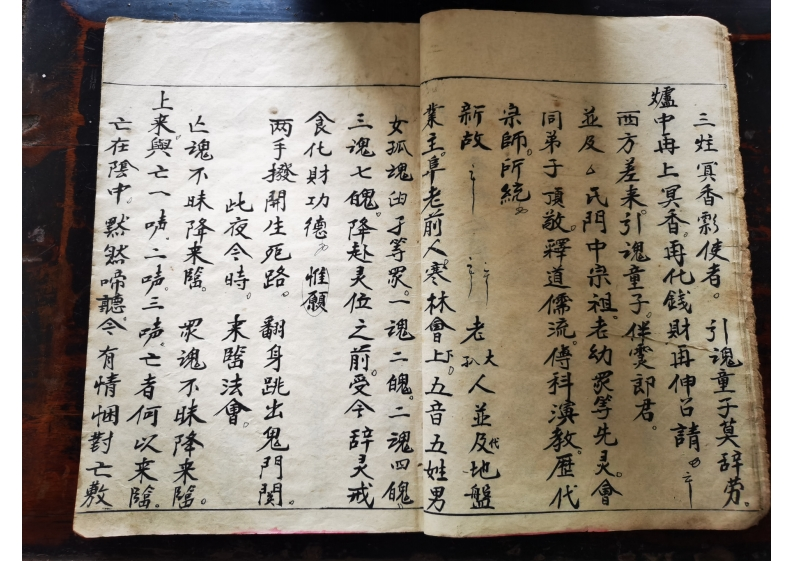 三炷冥香彩使者。引魂童子莫辞劳。
爐中再上冥香。再化錢財再伸召請
西方差来。引魂童子。伴霊郎君。
並及厶氏門中宗祖。老幼眾等先灵。會
同弟子頂敬。釋道儒流。傳科演教。歷代
宗師。所統
新故 老大人並及代地盤
業主。阜老前人。寒林會上下。五音五姓男
女孤魂由子等眾。一魂二魄。二魂四魄
三魂七魄。降赴灵位之前。受今辞灵戒
食化財功德 惟願
两手撥開生死路。翻身跳出鬼門関。
此夜今時。来臨法會。
亡魂不昧降来臨。眾魂不昧降来臨。
上来與亡一唤。二唤。三唤。亡者何以来臨。
亡在陰中。黙然啼聽。今有情悃對亡敷